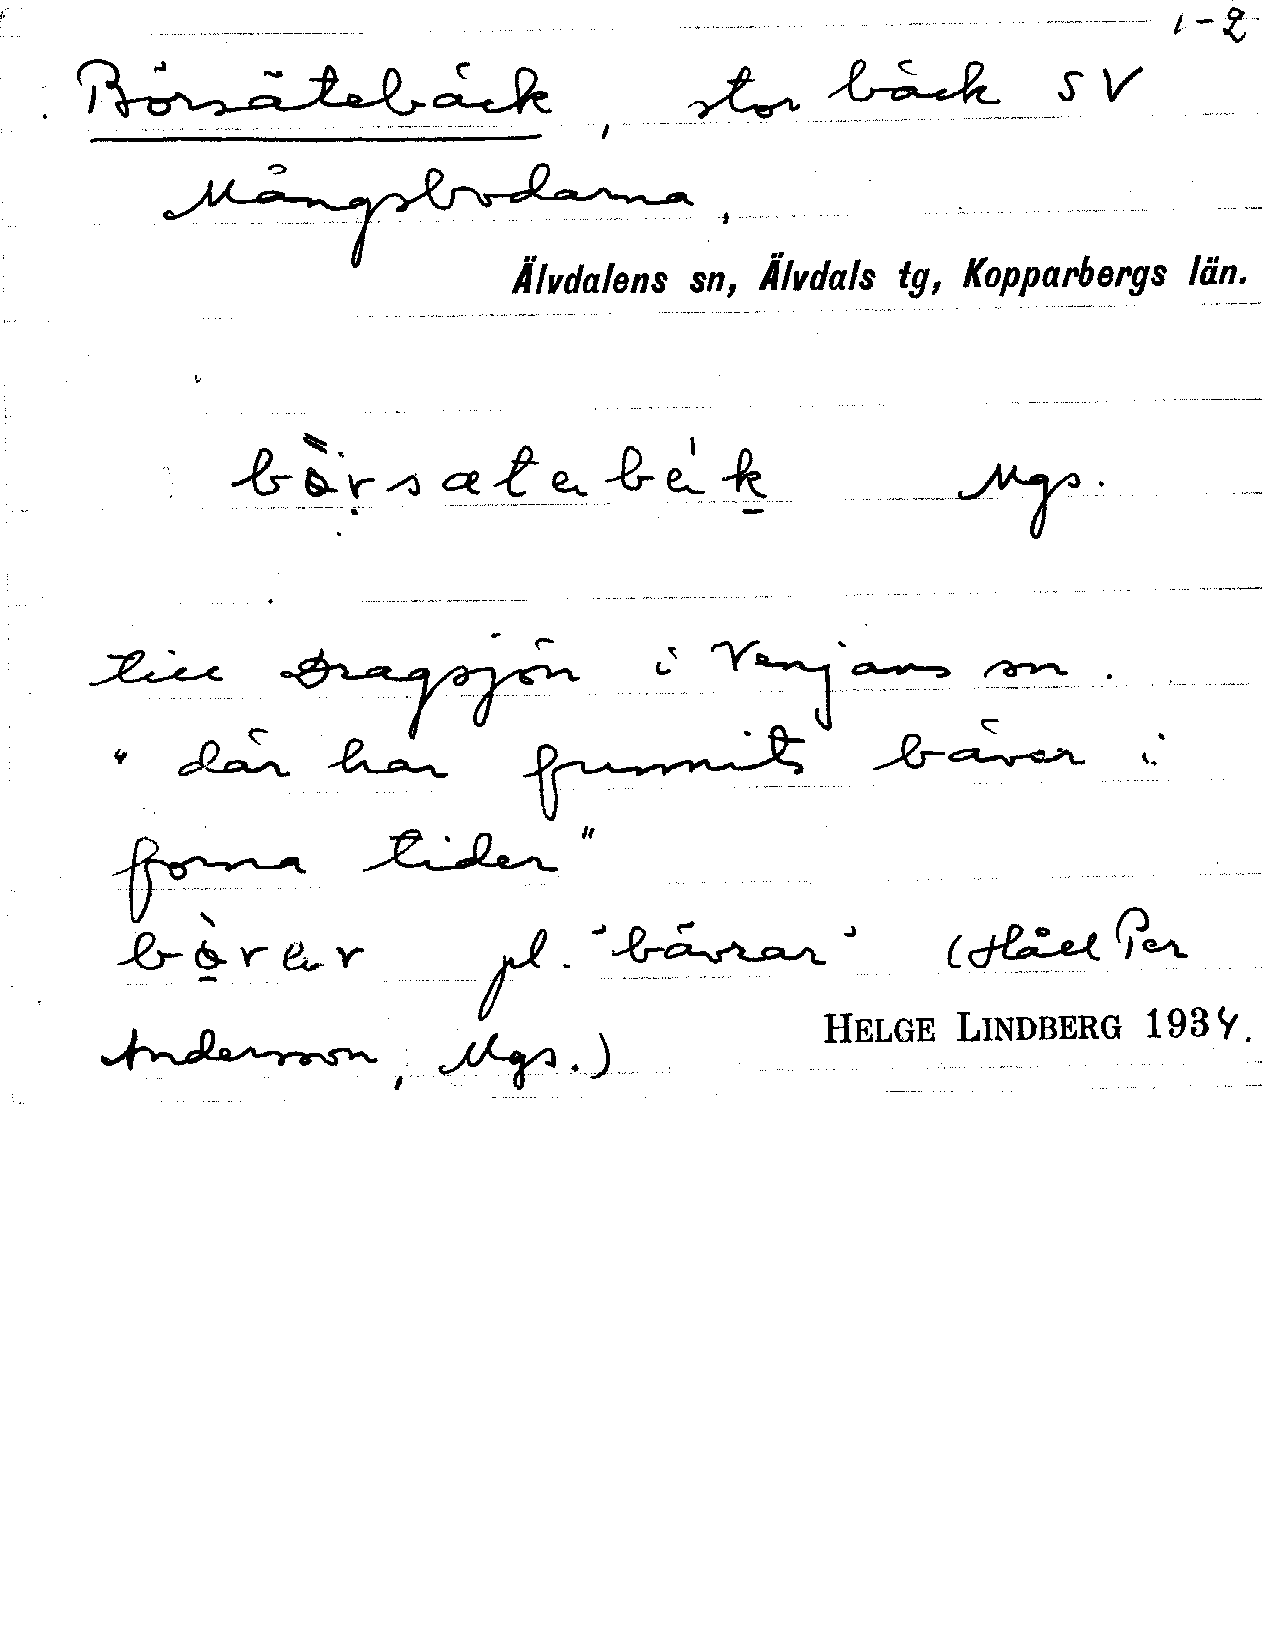 1-2
Börsätebäck, stor bäck SV
Mångsbodarna,
Älvdalens sn, Älvdals tg, Kopparbergs län.
Mgs.
till Dragsjön i Venjans sn.
"där har funnits bäver i
forna tider"
pl. 'bävrar' (Håll Per
Andersson, Mgs.)
HELGE LINDBERG 1934.